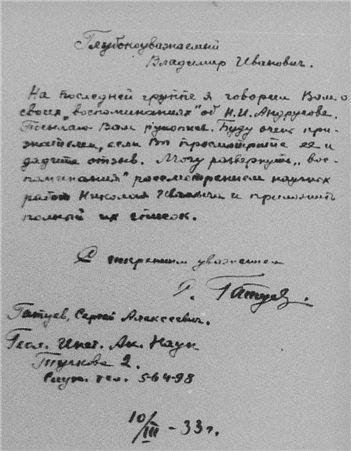 Глубокоуважаемый
Владимир Иванович.
На последней группе я говорил Вам о
своих „воспоминаниях" об Н.И. Андрусове.
Посылаю Вам рукопись. Буду очень при-
знателен, если Вы просмотрите ее и
дадите отзыв. Могу развернуть „вос-
поминания" рассмотрением научных
работ Николая Ивановича и приложить
полный их список.
С искренним уважением
Гатуев.
Гатуев, Сергей Алексеевич.
Геол. Инст. Ак. Наук
Тучкова 2.
Служ. тел. 5-64-98
10/III - 33 г.